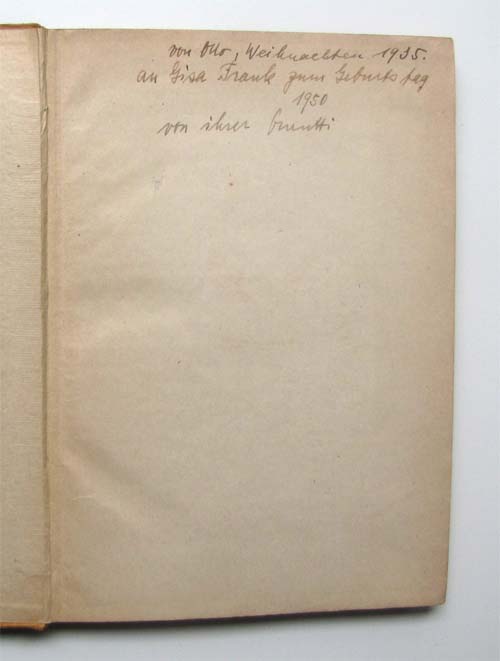 von Otto, Weihnachten 1935.
an Gisa Frank zum Geburtstag
1950
von ihrer